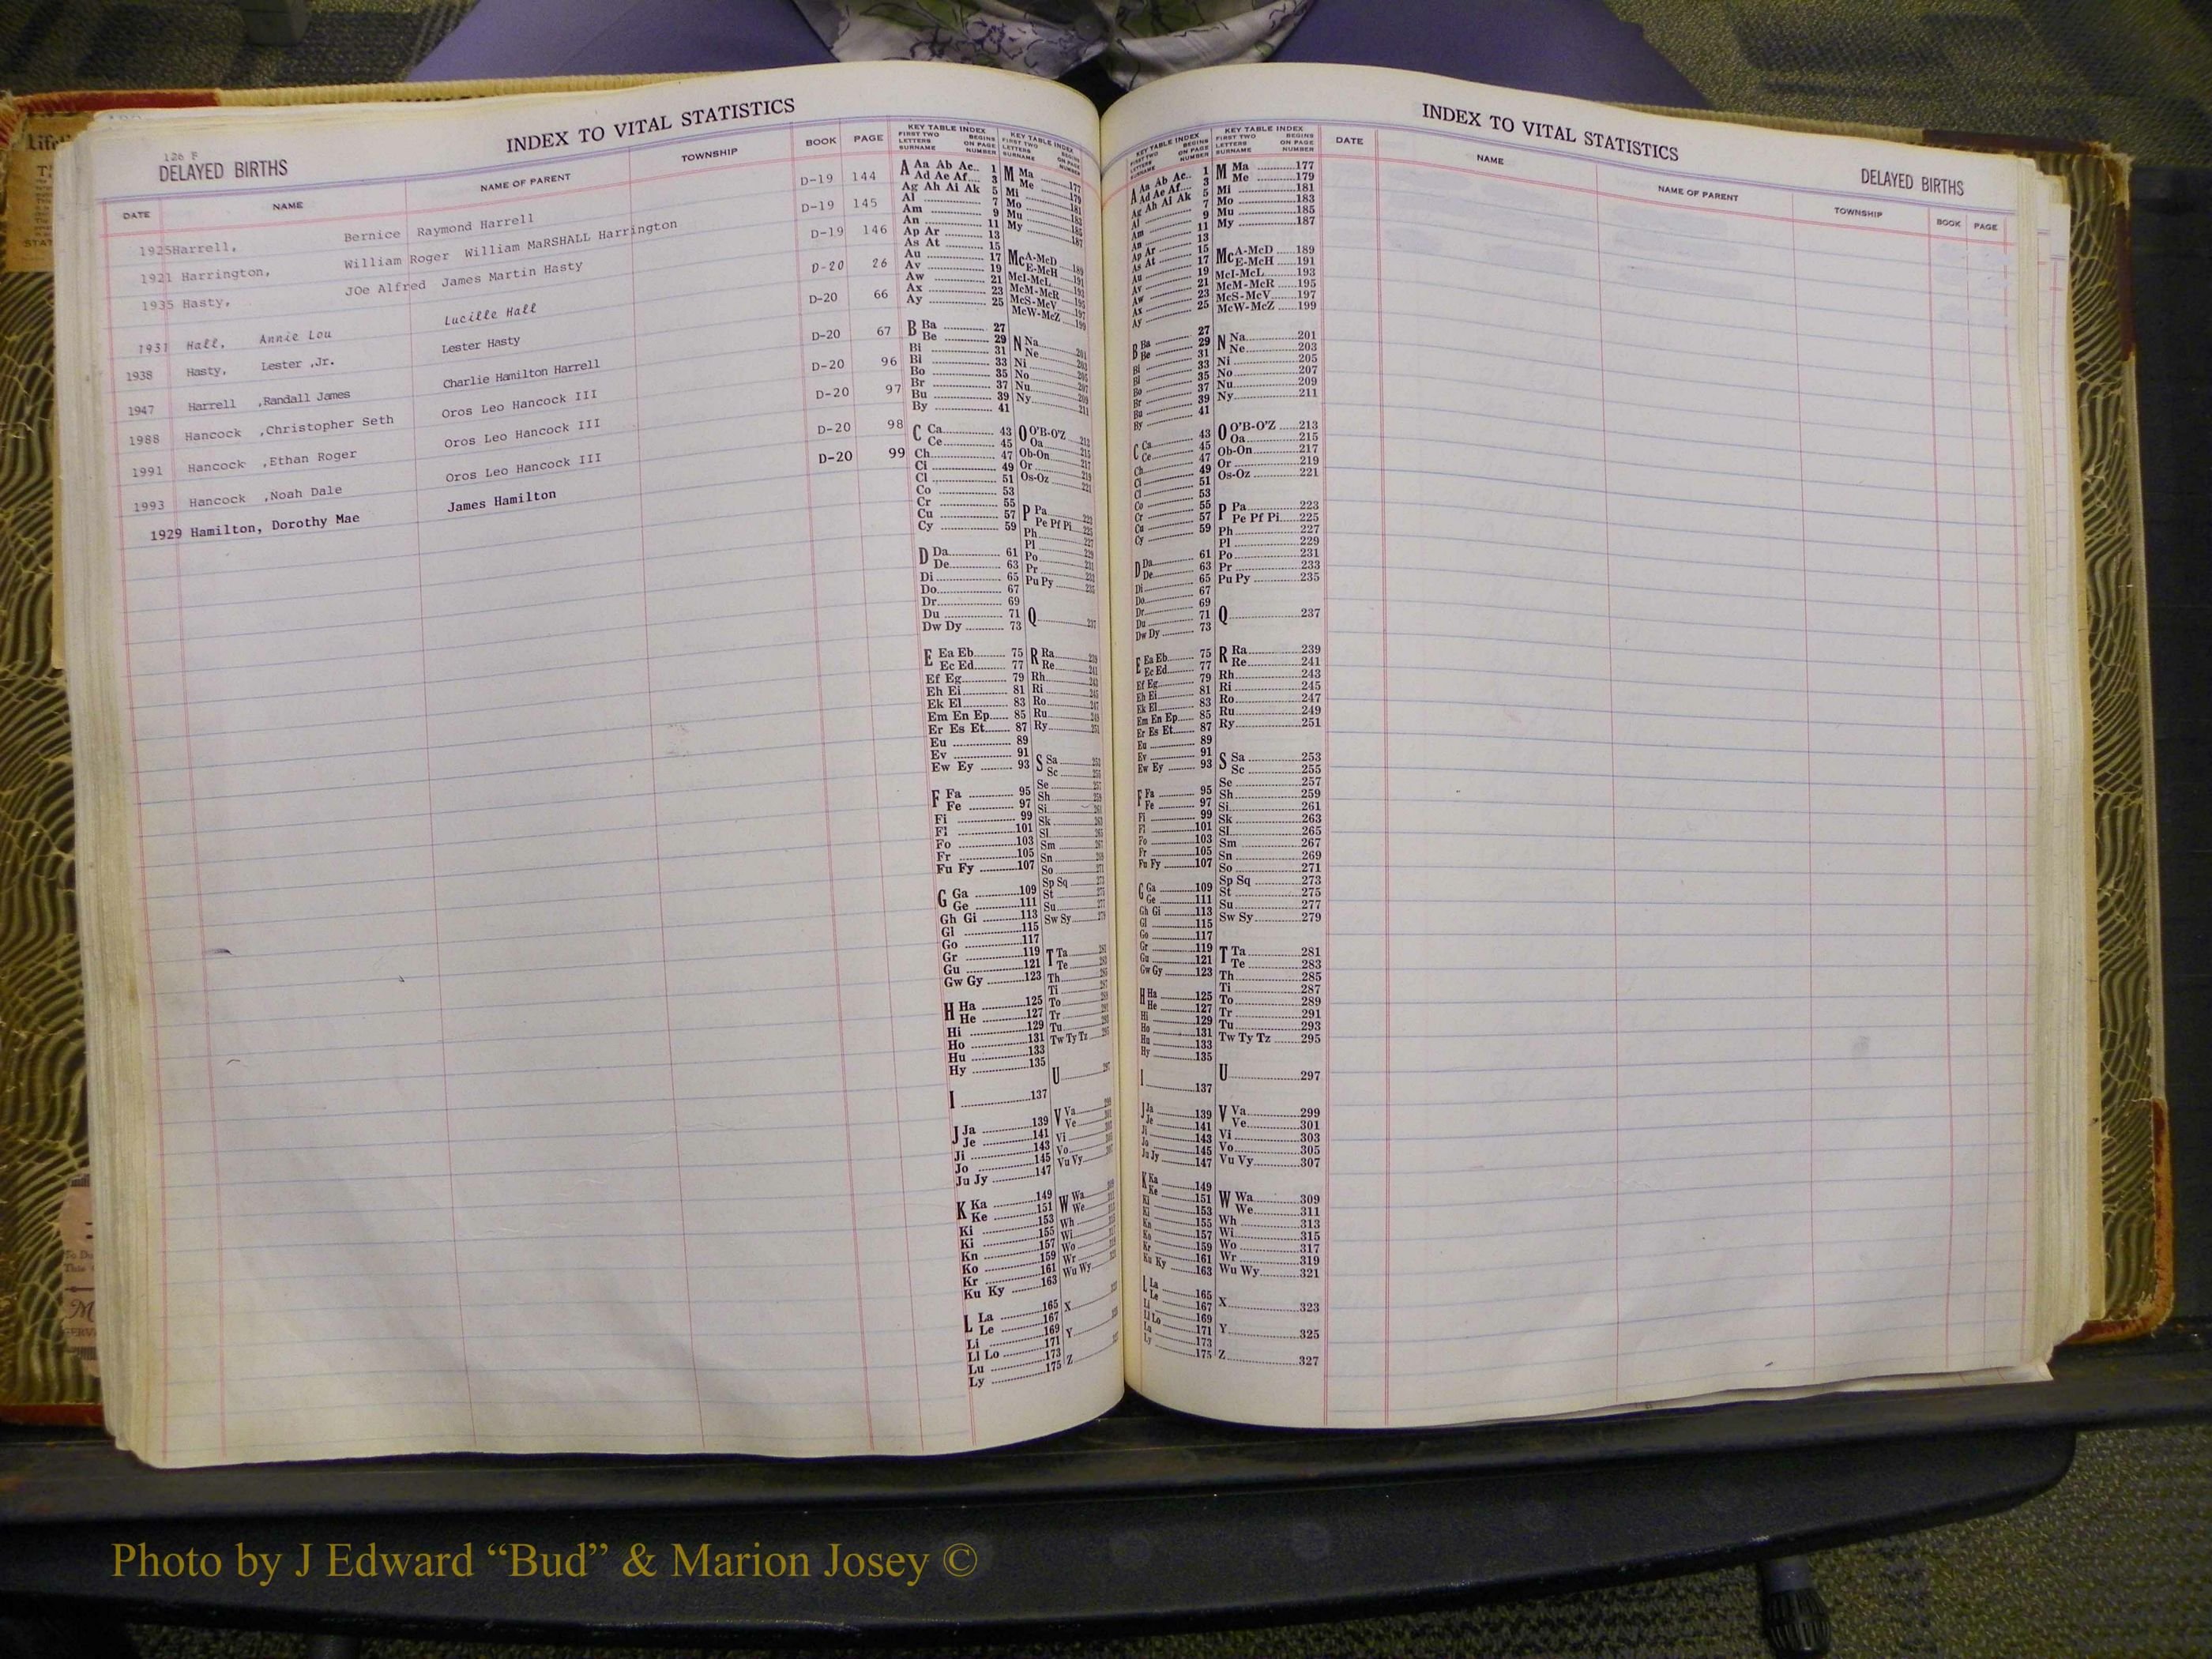 126 F
DELAYED BIRTHS
INDEX TO VITAL STATISTICS
DATE NAME NAME OF PARENT TOWNSHIP BOOK PAGE
1925 Harrell, Bernice Raymond Harrell D-19 144
1921 Harrington, William Roger William MaRSHALL Harrington D-19 145
1935 Hasty, JOe Alfred James Martin Hasty D-19 146
1931 Hall, Annie Lou Lucille Hall D-20 26
1938 Hasty, Lester ,Jr. Lester Hasty D-20 66
1947 Harrell ,Randall James Charlie Hamilton Harrell D-20 67
1988 Hancock ,Christopher Seth Oros Leo Hancock III D-20 96
1991 Hancock ,Ethan Roger Oros Leo Hancock III D-20 97
1993 Hancock ,Noah Dale Oros Leo Hancock III D-20 98
1929 Hamilton, Dorothy Mae James Hamilton D-20 99
KEY TABLE INDEX
FIRST TWO LETTERS SURNAME BEGINS ON PAGE NUMBER
A Aa Ab Ac.. 1
Ad Ae Af.... 3
Ag Ah Ai Ak 5
Al 7
Am 9
An 11
Ap Ar 13
As At 15
Au 17
Av 19
Aw 21
Ax 23
Ay 25
B Ba 27
Be 29
Bi 31
Bl 33
Bo 35
Br 37
Bu 39
By 41
C Ca 43
Ce 45
Ch 47
Ci 49
Cl 51
Co 53
Cr 55
Cu 57
Cy 59
D Da 61
De 63
Di 65
Do 67
Dr 69
Du 71
Dw Dy 73
E Ea Eb 75
Ec Ed 77
Ef Eg 79
Eh Ei 81
Ek El 83
Em En Ep 85
Er Es Et 87
Eu 89
Ev 91
Ew Ey 93
F Fa 95
Fe 97
Fi 99
Fl 101
Fo 103
Fr 105
Fu Fy 107
G Ga 109
Ge 111
Gh Gi 113
Gl 115
Go 117
Gr 119
Gu 121
Gw Gy 123
H Ha 125
He 127
Hi 129
Ho 131
Hu 133
Hy 135
I 137
J Ja 139
Je 141
Ji 143
Jo 145
Ju Jy 147
K Ka 149
Ke 151
Ki 153
Ki 155
Kn 157
Ko 159
Kr 161
Ku Ky 163
L La 165
Le 167
Li 169
Ll Lo 171
Lu 173
Ly 175
INDEX TO VITAL STATISTICS
DELAYED BIRTHS
DATE NAME NAME OF PARENT TOWNSHIP BOOK PAGE
KEY TABLE INDEX
FIRST TWO LETTERS SURNAME BEGINS ON PAGE NUMBER
M Ma 177
Me 179
Mi 181
Mo 183
Mu 185
My 187
Mc A-McD 189
E-McH 191
McI-McL 193
McM-McR 195
McS-McV 197
McW-McZ 199
N Na 201
Ne 203
Ni 205
No 207
Nu 209
Ny 211
O O'B-O'Z 213
Oa 215
Ob-On 217
Or 219
Os-Oz 221
P Pa 223
Pe Pf Pi 225
Ph 227
Pl 229
Po 231
Pr 233
Pu Py 235
Q 237
R Ra 239
Re 241
Rh 243
Ri 245
Ro 247
Ru 249
Ry 251
S Sa 253
Sc 255
Se 257
Sh 259
Si 261
Sk 263
Sl 265
Sm 267
Sn 269
So 271
Sp Sq 273
St 275
Su 277
Sw Sy 279
T Ta 281
Te 283
Th 285
Ti 287
To 289
Tr 291
Tu 293
Tw Ty Tz 295
U 297
V Va 299
Ve 301
Vi 303
Vo 305
Vu Vy 307
W Wa 309
We 311
Wh 313
Wi 315
Wo 317
Wr 319
Wu Wy 321
X 323
Y 325
Z 327
Photo by J Edward “Bud” & Marion Josey ©